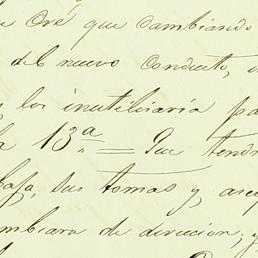 Oré que cambiando
del nuevo conducto,
y los inutilisaría pa
la 13ª = Que tendr
baja, sus tomas y, ase
mbiara de direccion; y